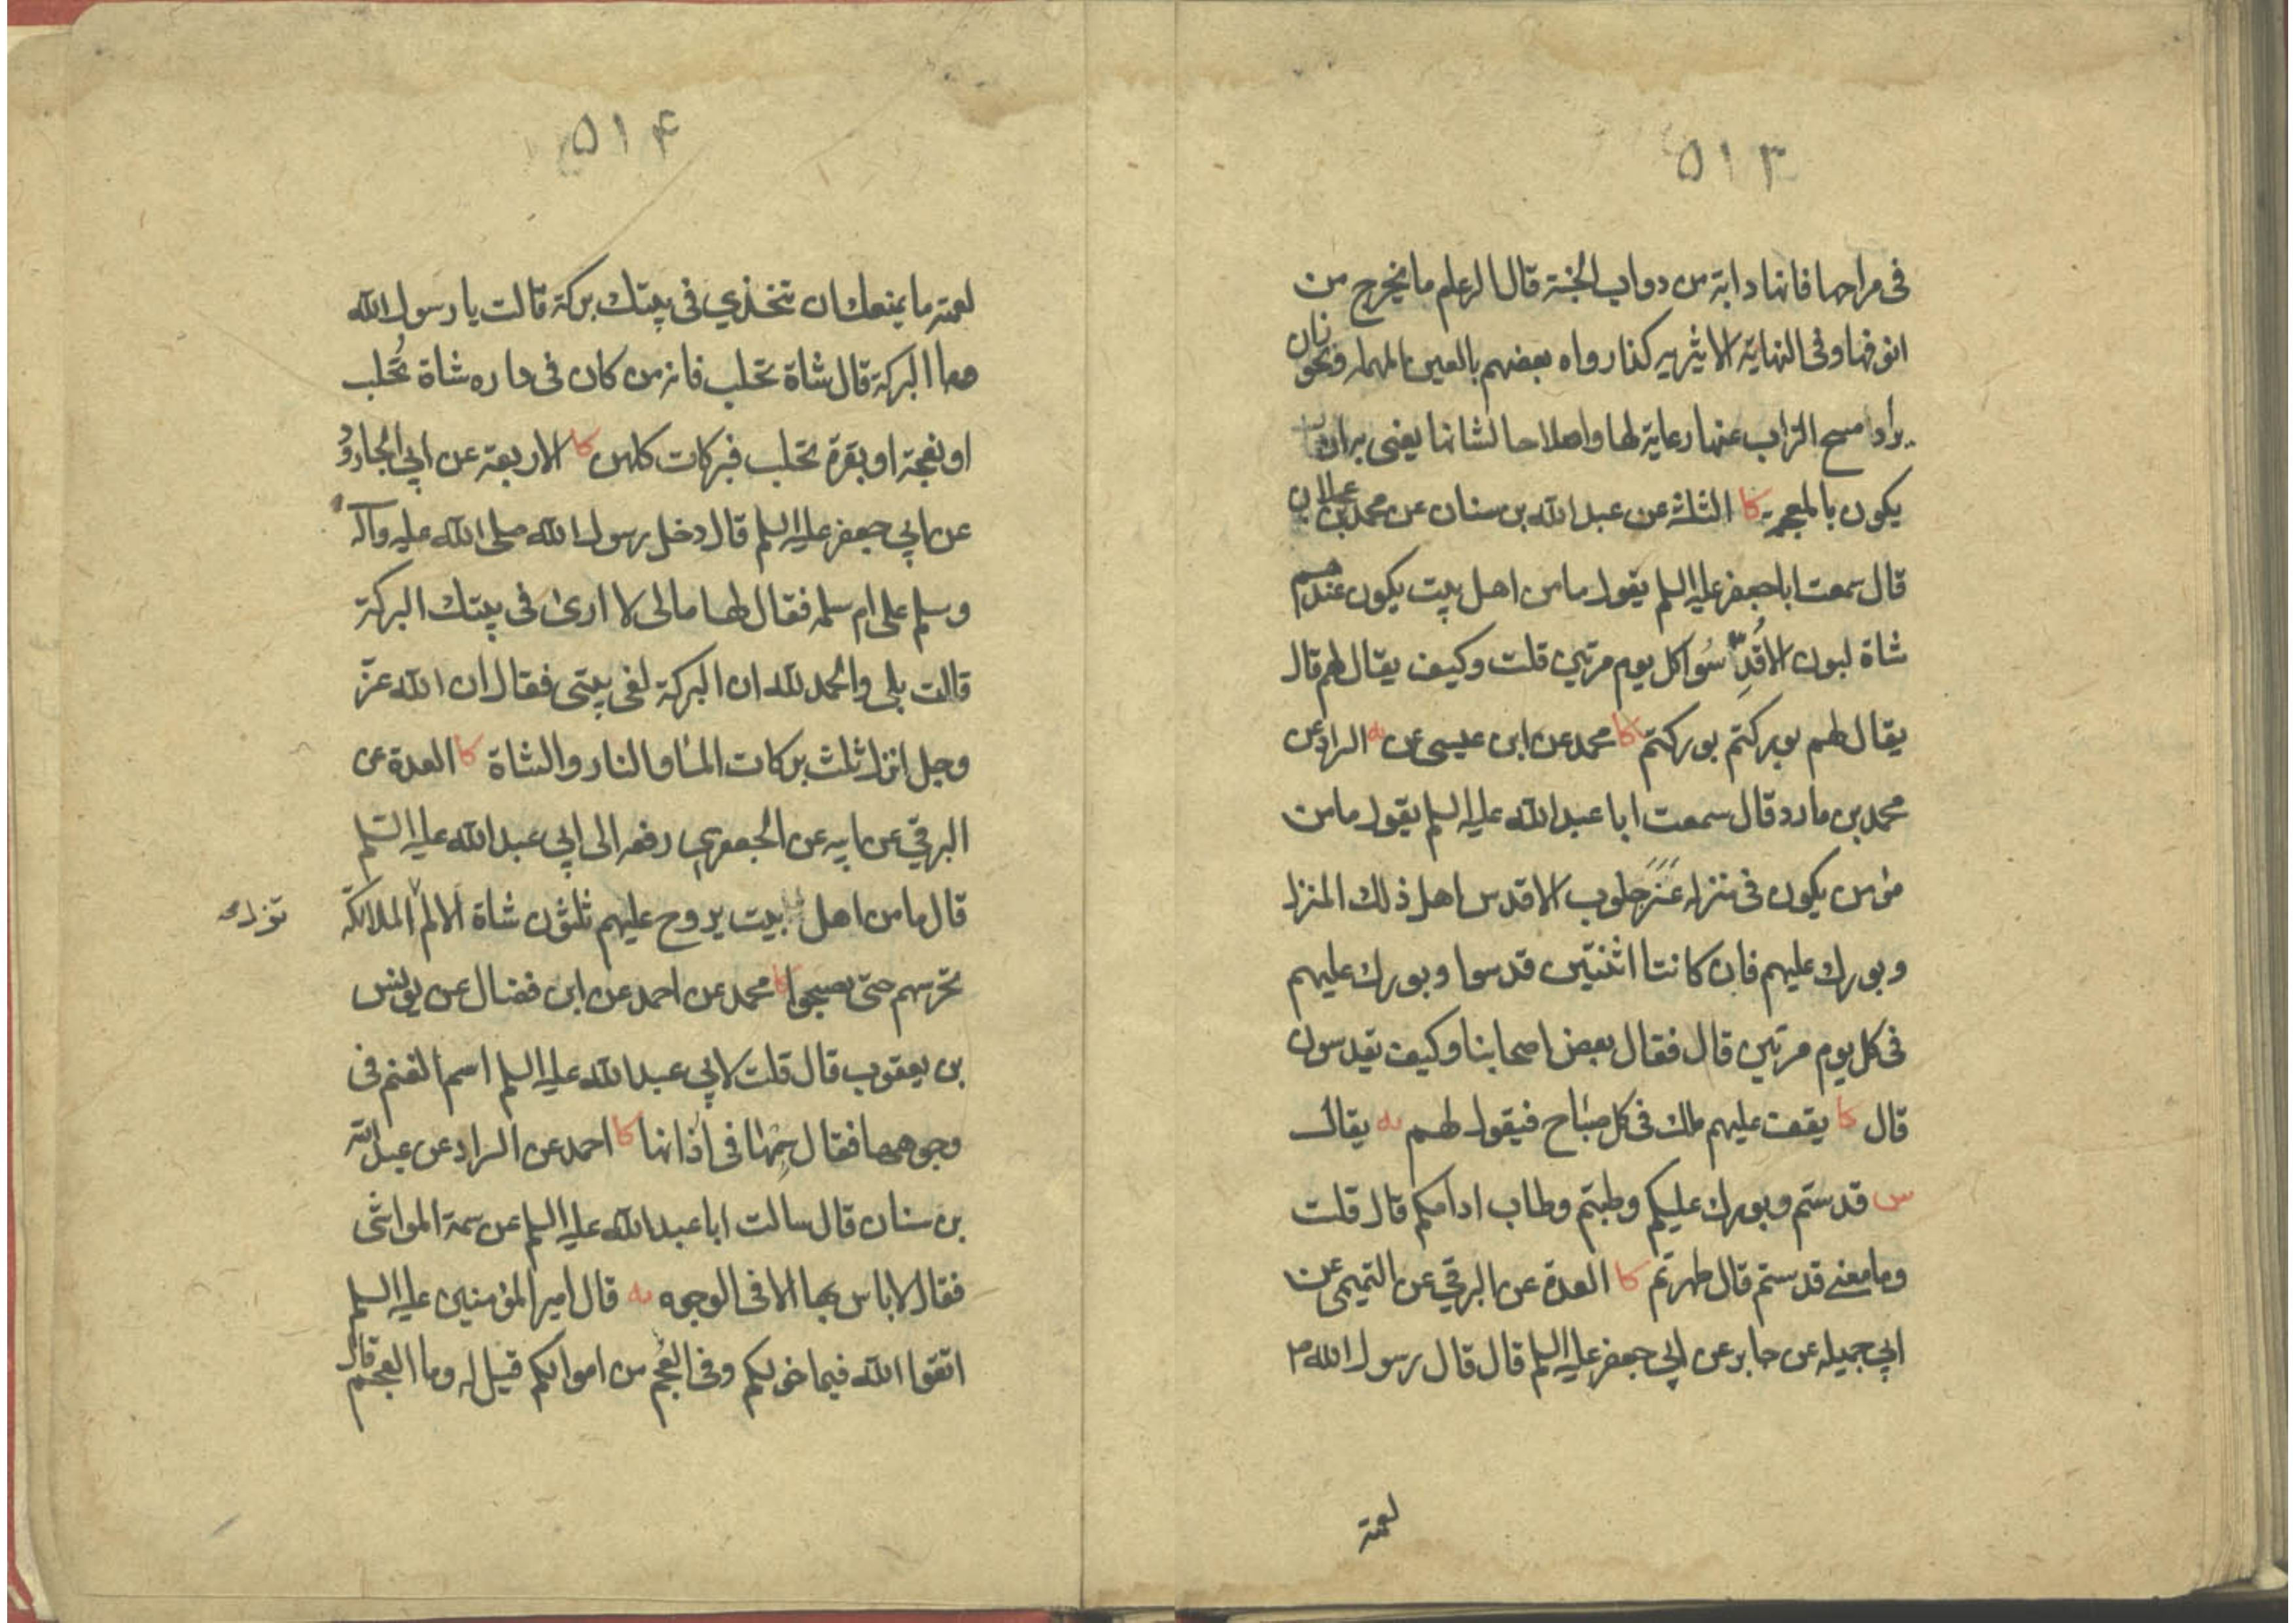 ٥١٣
فى مراحها فانها دابة من دواب الجنة قال الرعام ما يخرج من
انوفها وفى النهاية الاثيرية كذا رواه بعضهم بالعين المهملة ويجوز ان
يراد مسح التراب عنها رعاية لها واصلاحا لشانها يعنى
يكون بالمعجمة كا الثلثة عن عبدالله بن سنان عن محمد بن عجلان
قال سمعت اباجعفر عليه السلم يقول ما من اهل بيت يكون عندهم
شاة لبون الا قُدِّسُوا كل يوم مرتين قلت وكيف يقال لهم قال
يقال لهم بوركتم بوركتم كا محمد عن ابن عيسى عن يه السراد عن
محمد بن مارد قال سمعت ابا عبدالله عليه السلم يقول ما من
مؤمن يكون فى منزله عنز حلوب الا قدس اهل ذلك المنزل
وبورك عليهم فان كانتا اثنتين قدسوا وبورك عليهم
فى كل يوم مرتين قال فقال بعض اصحابنا وكيف يقدسون
قال كا يقف عليهم ملك فى كل صباح فيقول لهم يه يقال
س قدستم وبورك عليكم وطبتم وطاب ادامكم قال قلت
وما معنى قدستم قال طهرتم كا العدة عن البرقي عن التميمى عن
ابي جميله عن جابر عن ابي جعفر عليه السلم قال قال رسول الله ص
لعمته
٥١۴
لعمته ما يمنعك ان تتخذي فى بيتك بركة قالت يا رسول الله
وما البركة قال شاة تحلب فانه من كان فى داره شاة تُحلب
او نعجة او بقرة تحلب فبركات كلهن كا الاربعة عن ابي الجارود
عن ابي جعفر عليه السلم قال دخل رسول الله صلى الله عليه وآله
وسلم على ام سلمه فقال لها مالى لا ارى فى بيتك البركة
قالت بلى والحمد لله ان البركة لفى بيتى فقال ان الله عزّ
وجل انزل ثلث بركات الماء والنار والشاة كا العدة عن
البرقي عن ابيه عن الجعفري رفعه الى ابي عبدالله عليه السّلم
قال ما من اهل بيت يروح عليهم ثلثون شاة الا لم الملائكة
تزل
تحرسهم حتى يصبحوا كا محمد عن احمد عن ابن فضال عن يونس
بن يعقوب قال قلت لابي عبدالله عليه السلم اسم الغنم فى
وجوهها فقال سِمْها فى آذانها كا احمد عن السراد عن عبدالله
بن سنان قال سالت اباعبدالله عليه السلم عن سمة المواشى
فقال لا باس بها الا فى الوجوه يه قال امير المؤمنين عليه السلم
اتقوا الله فيما خولكم وفى العُجم من اموالكم قيل له وما العجم قال